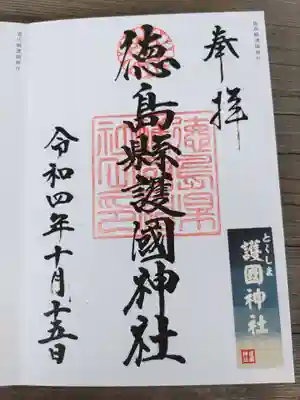 奉拝
徳島縣護國神社
令和四年十月十五日
とくしま
護國神社